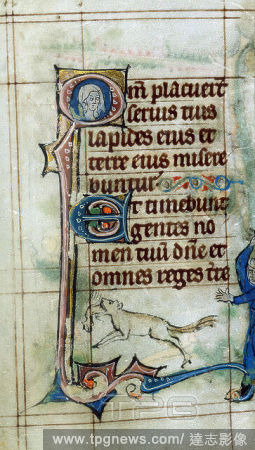 Qm̄ placuert̄
seruis tuis
lapides eius et
terre eius misere
buntur
Et timebunt
gentes no
men tuū dn̄e et
omnes reges tr̄e
TPG
www.tpgnews.com/ 達志影像